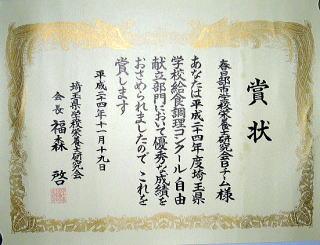 賞状
春日部市学校栄養士研究会Bチーム様
あなたは平成二十四年度埼玉県
学校給食調理コンクール・自由
献立部門において優秀な成績を
おさめられましたので これを
賞します
平成二十四年十一月十九日
埼玉県学校栄養士研究会
会長 福森 啓